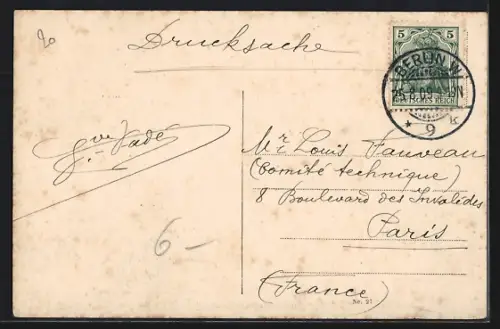 20
Drucksache
5 5
BERLIN W.
25.8.09
DEUTSCHES REICH
* 9 k
Mr Louis Fauveau
(Comité technique)
8 Boulevard des Invalides
Paris
(France)
6-
No. 21